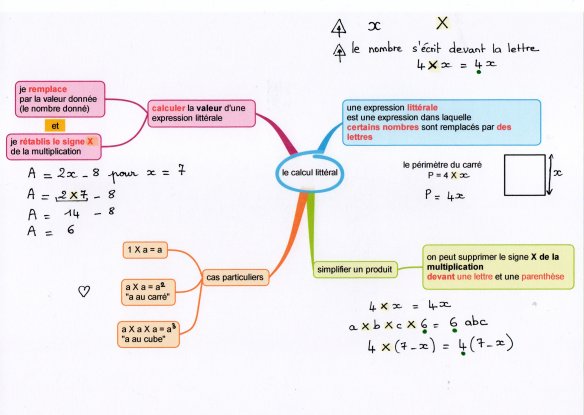 x X
le nombre s'écrit devant la lettre
4 X x = 4x
je remplace
par la valeur donnée
(le nombre donné)
et
je rétablis le signe X
de la multiplication
calculer la valeur d'une
expression littérale
A = 2x - 8 pour x = 7
A = 2 X 7 - 8
A = 14 - 8
A = 6
le calcul littéral
une expression littérale
est une expression dans laquelle
certains nombres sont remplacés par des
lettres
le périmètre du carré
P = 4 X x
P = 4x
x
cas particuliers
1 X a = a
a X a = a²
"a au carré"
a X a X a = a³
"a au cube"
simplifier un produit
on peut supprimer le signe X de la
multiplication
devant une lettre et une parenthèse
4 X x = 4x
a X b X c X 6 = 6 abc
4 X (7 - x) = 4(7 - x)